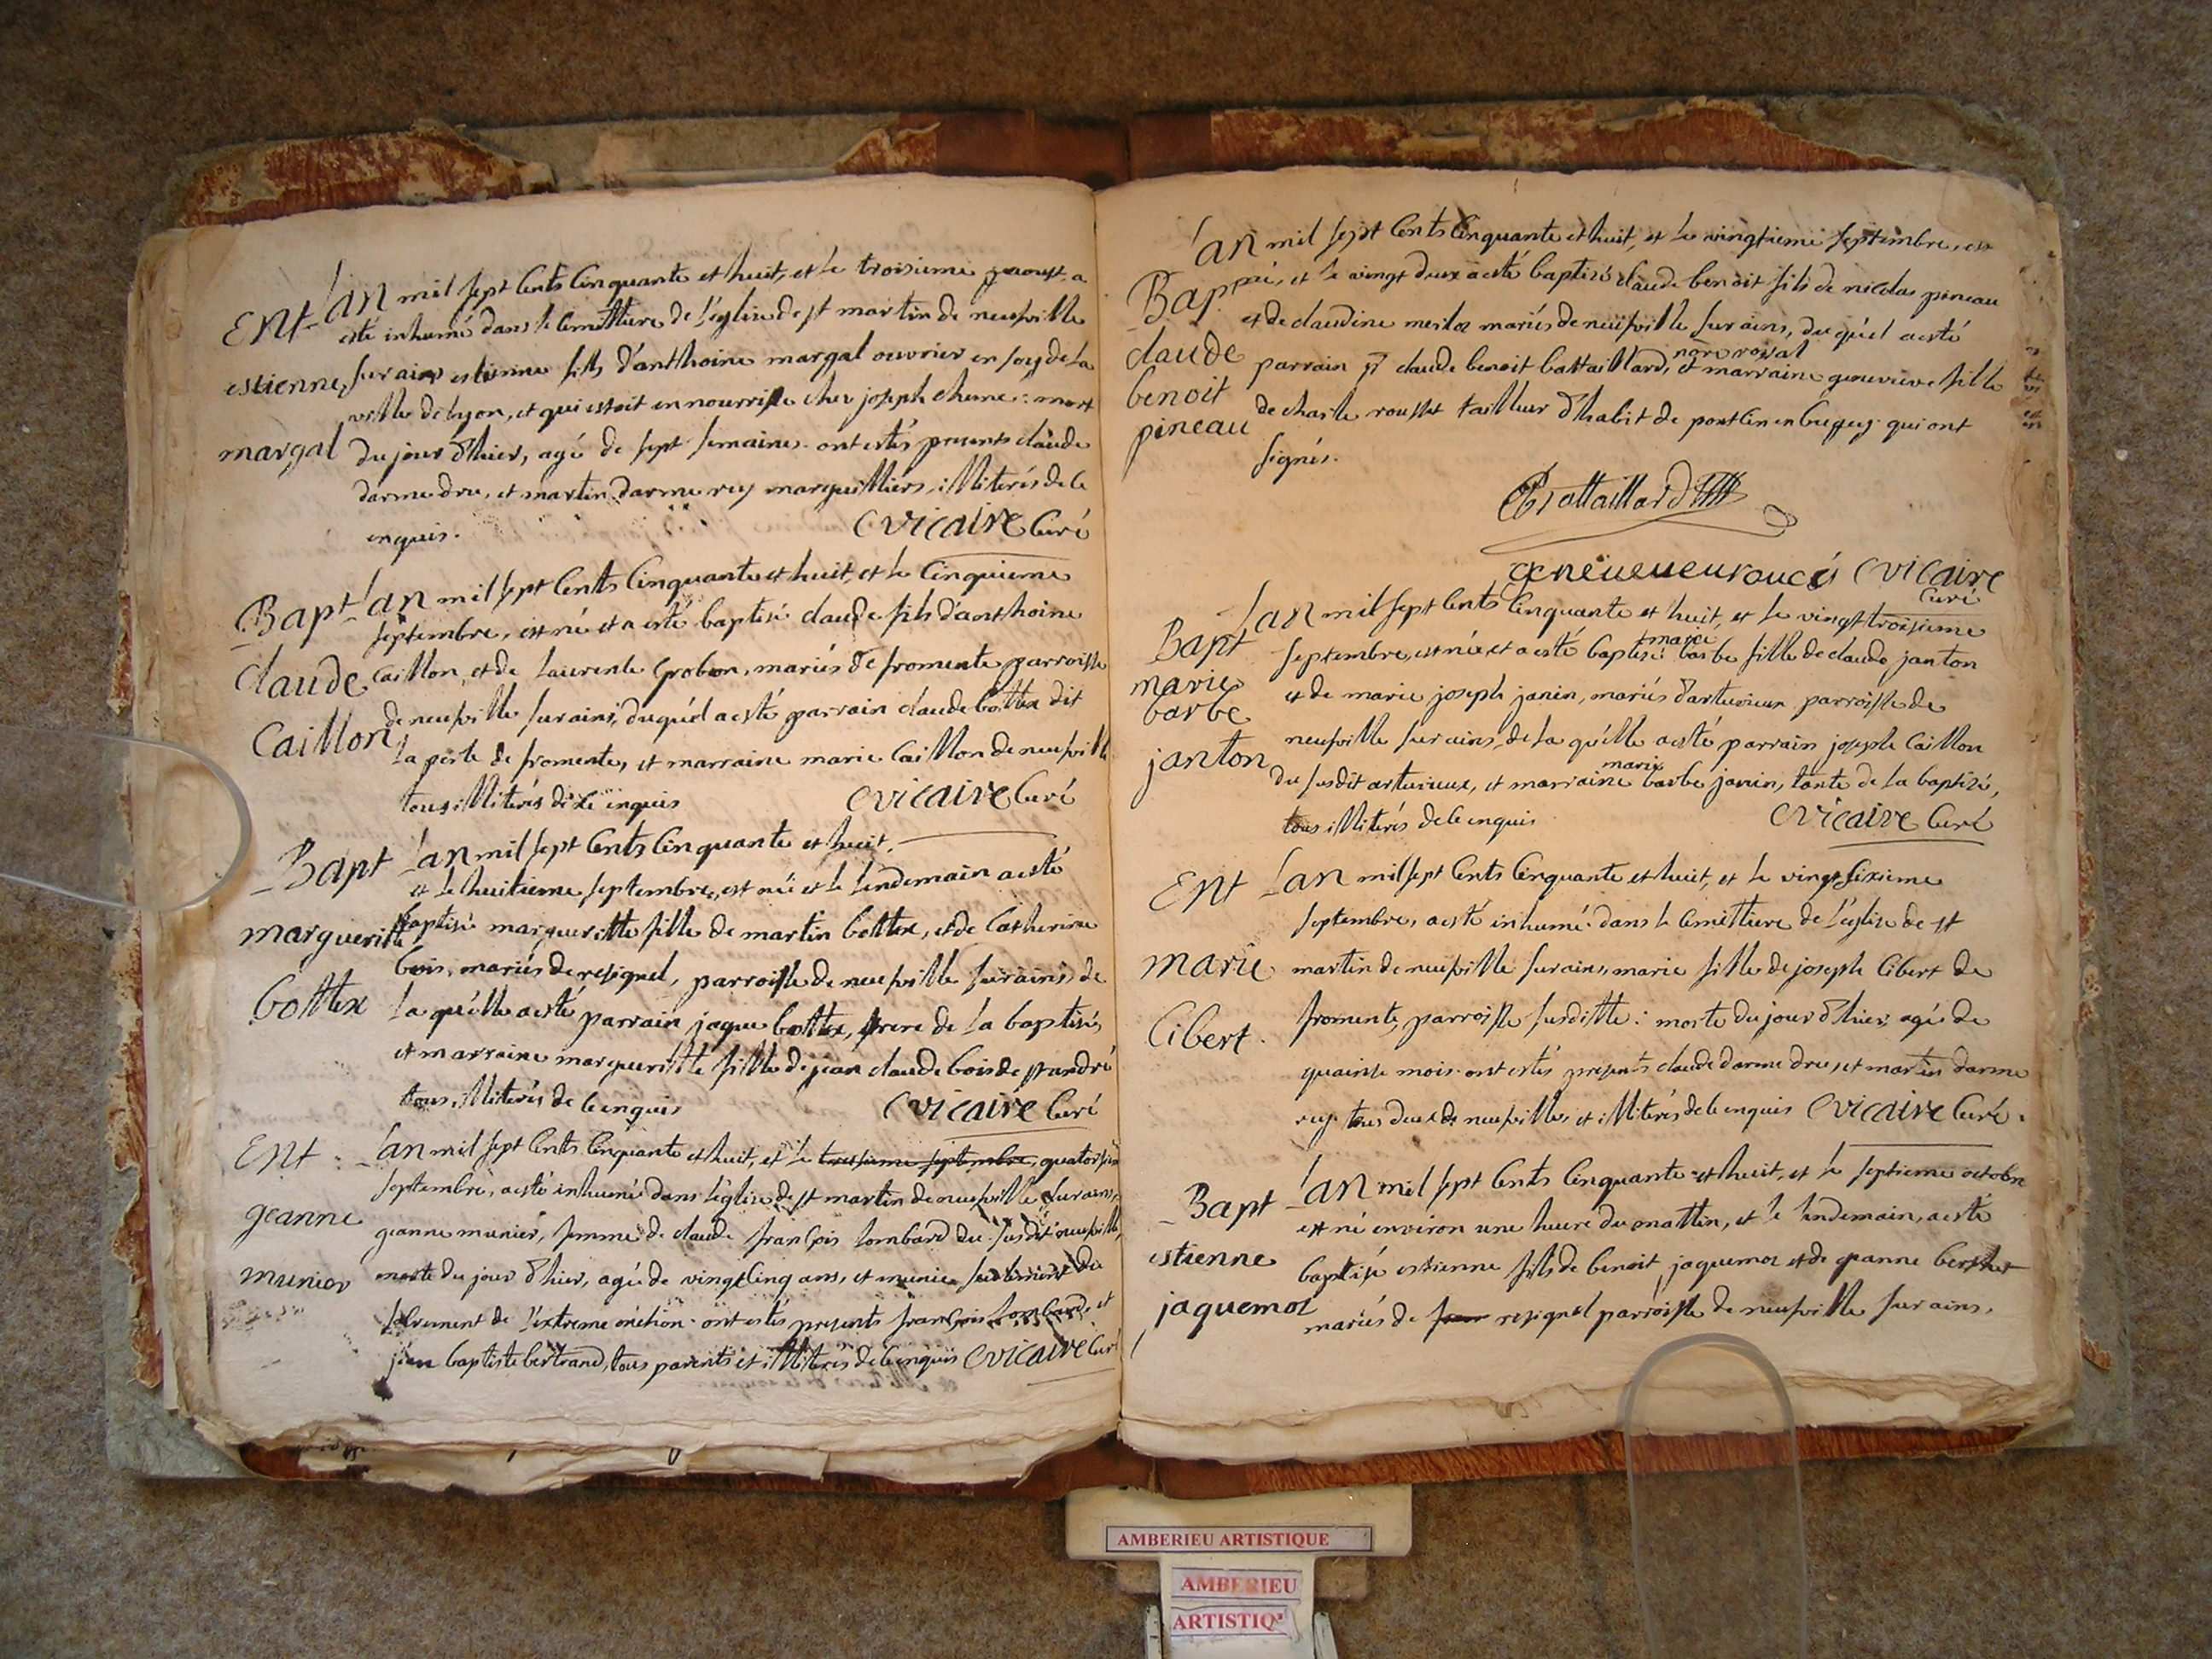 Ent
estienne
margal
L'an mil sept Cents Cinquante et huit, et le troisieme a
esté inhumé dans le Cimettiere de l'eglise de st martin de neufville
sur ains estienne fils d'anthoine margal ouvrier en soÿ de la
ville de lyon, et qui estoit en nourrisse cher joseph chemé: mort
du jour d'hier, agé de sept semaines. ont estés presents claude
darme dru, et martin darme rey marguilliers illiterés de ce
enquis.
Cvicaire Curé
Bapt
Claude
Caillon
L'an mil sept Cents Cinquante et huit, et le Cinquieme
septembre, est né et a esté baptisé claude fils d'anthoine
Caillon, et de laurente Grobon, mariés de fromente parroisse
de neufville sur ains, duquél a esté parrain claude bottex dit
la perle de fromente, et marraine marie Caillon de neufville
tous illiterés de Ce inquis
Cvicaire Curé
Bapt
margueritte
bottex
L'an mil sept Cents Cinquante et huit.
et le huitieme septembre, est née et le lendemain a esté
baptisé margueritte fille de martin bottex, et de Catherine
bois, mariés de resignel, parroisse de neufville sur ains, de
la quélle a esté parrain jaque bottex, frere de la baptisé,
et marraine margueritte fille de jean claude bois de st andré
tous illiterés de Ce enquis
Cvicaire Curé
Ent
geanne
munier
L'an mil sept Cents Cinquante et huit, et le treisieme septembre, quatorsieme
septembre, a esté inhumé dans l'eglise de st martin de neufville sur ains,
geanne munier, femme de claude françois lombard du susdit neufville,
morte du jour d'hier, agé de vingt Cinq ans, et munie seulement du
sacrement de l'extreme onction. ont estés presents françois lombard, et
jean baptiste bertrand, tous parents et illiteres de Ce enquis Cvicaire Curé
Bap
claude
benoit
pineau
L'an mil sept Cents Cinquante et huit, et le vingtieme septembre, est
né, et le vingt deux a esté baptisé claude benoit fils de nicolas pineau
et de claudine merloz mariés de neufville sur ains, duquél a esté
nore royal
parrain sr claude benoit battaillard, et marraine genevieve fille
de charle rousset tailleur d'habit de pontCin en bugey. qui ont
signés.
CBattaillard
geneueueuroucés Cvicaire
Curé
Bapt
marie
barbe
janton
L'an mil sept Cents Cinquante et huit, et le vingt troisieme
marie
septembre, est née et a esté baptisé barbe fille de claude janton
et de marie joseph janin, mariés d'arturieux parroisse de
neufville sur ains, de la quélle a esté parrain joseph Caillon
marie
du susdit arturieux, et marraine barbe janin, tante de la baptisé,
tous illiterés de Ce enquis
Cvicaire Curé
Ent
marie
Cibert
L'an mil sept Cents Cinquante et huit, et le vingt sixieme
septembre, a esté inhumé dans le Cimettiere de l'eglise de st
martin de neufville sur ains, marie fille de joseph Cibert de
fromente, parroisse susditte: morte du jour d'hier, agé de
quainse mois. ont estés presents claude darme dru, et martin darme
rey. tous deux de neufville, et illiterés de Ce enquis Cvicaire Curé.
Bapt
estienne
jaquemoz
L'an mil sept Cents Cinquante et huit, et le septieme octobre
est né environ une heure du mattin, et le lendemain, a esté
baptisé estienne fils de benoit jaquemoz et de geanne berthet
mariés de resignel parroisse de neufville sur ains.
AMBERIEU ARTISTIQUE
AMBERIEU
ARTISTIQ